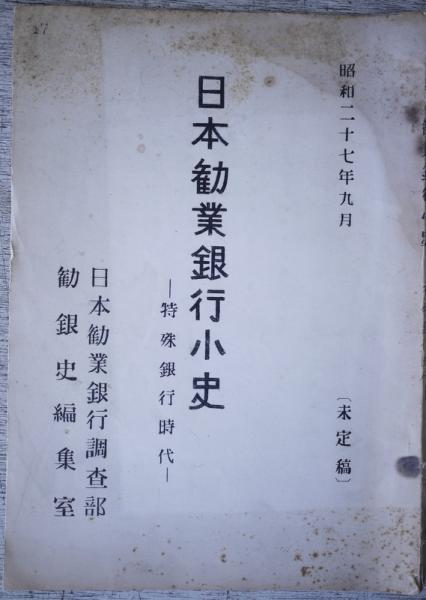 昭和二十七年九月
〔未定稿〕
日本勧業銀行小史
―特殊銀行時代―
日本勧業銀行調査部
勧銀史編集室
27